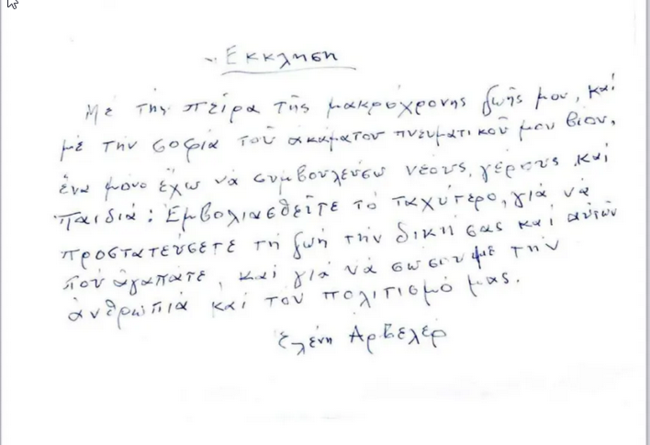 Έκκληση
Μὲ τὴν πείρα τῆς μακρόχρονης ζωῆς μου, καὶ
μὲ τὴν σοφία τοῦ ακαματου πνευματικοῦ μου βιου,
ἕνα μόνο ἔχω νὰ συμβουλεύσω νέους, γέρους καὶ
παιδιά: Ἐμβολιασθεῖτε τὸ ταχύτερο, γιὰ νὰ
προστατεύσετε τὴ ζωὴ τὴν δική σας καὶ αὐτῶν
ποὺ ἀγαπᾶτε, καὶ γιὰ νὰ σώσουμε τὴν
ἀνθρωπιὰ καὶ τὸν πολιτισμό μας.
Ἑλένη Αρβελέρ